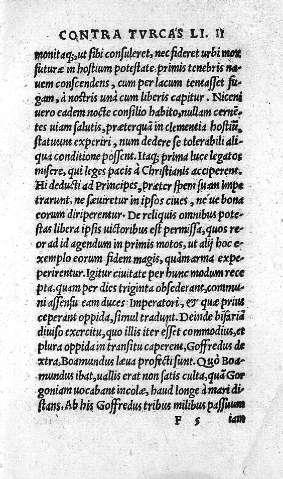 CONTRA TVRCAS LI. II
monitaq;, ut sibi consuleret, nec fideret urbi mox
futuræ in hostium potestate. primis tenebris na-
uem conscendens, cum per lacum tentasset fu-
gam, à nostris unà cum liberis capitur. Niceni
uero eadem nocte consilio habito, nullam cernẽ-
tes uiam salutis, præterquã in clementia hostiũ,
statuunt experiri, num dedere se tolerabili ali-
qua conditione possent. Itaq; prima luce legatos
misere, qui leges pacis à Christianis acciperent.
Hi deducti ad Principes, præter spem suam impe
trarunt, ne sæuiretur in ipsos ciues, ne ue bona
eorum diriperentur. De reliquis omnibus pote-
stas libera ipsis uictoribus est permissa, quos re-
or ad id agendum in primis motos, ut alij hoc e-
xemplo eorum fidem magis, quàm arma expe-
perirentur. Igitur ciuitate per hunc modum rece
pta. quam per dies triginta obsederant, commu-
ni assensu eam duces Imperatori, et quæ prius
ceperant oppida, simul tradunt. Deinde bifariã
diuiso exercitu, quo illis iter esset commodius, et
plura oppida in transitu caperent, Goffredus de
xtra, Boamundus læua profecti sunt. Quò Boa-
mundus ibat, uallis erat non satis culta, quã Gor
goniam uocabant incolæ, haud longe à mari di-
stans. Ab his Goffredus tribus milibus passuum
F 5 iam